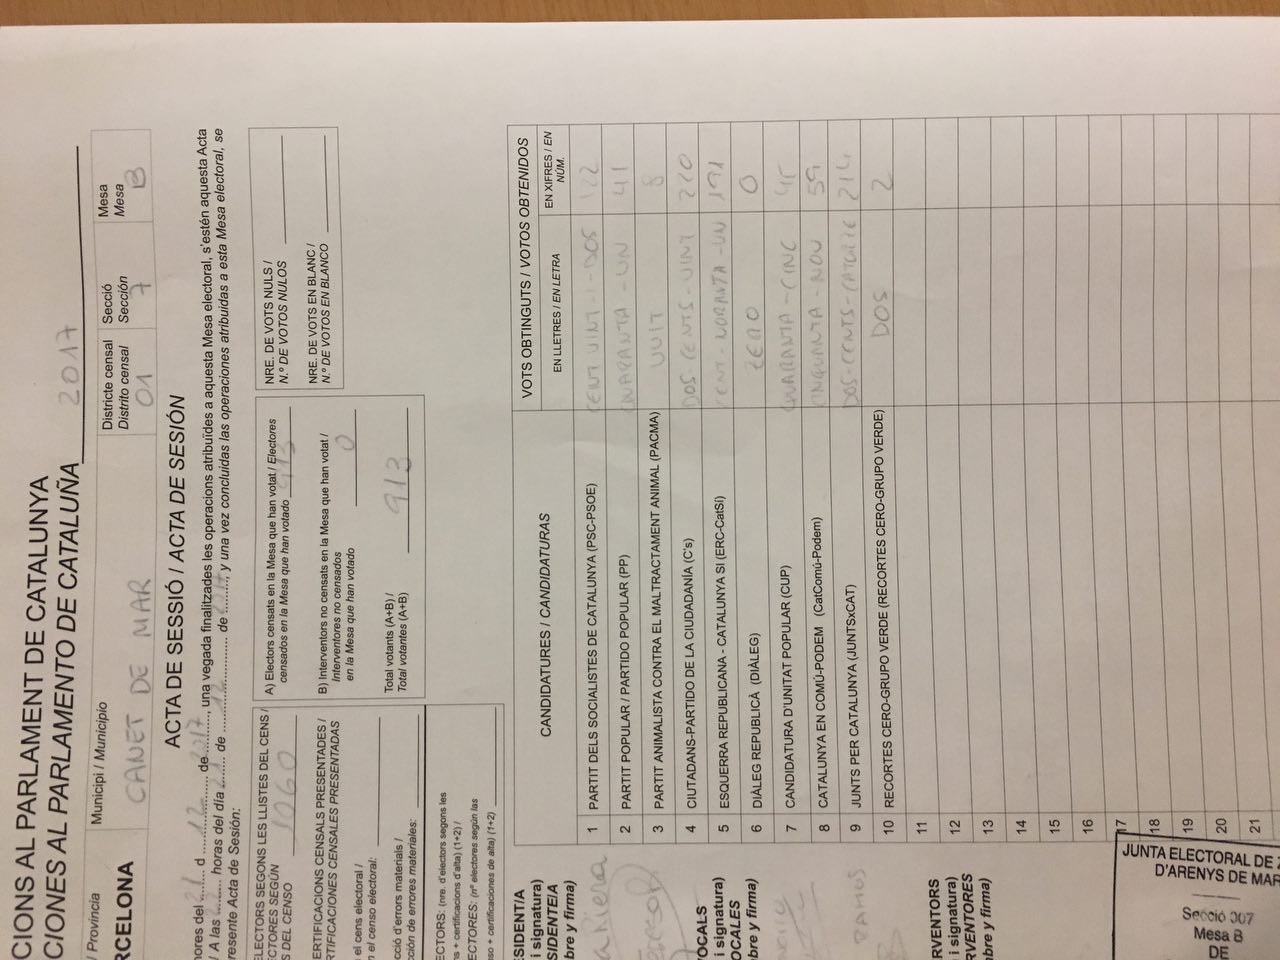 CIONS AL PARLAMENT DE CATALUNYA
CIONES AL PARLAMENTO DE CATALUÑA 2017
/ Provincia
RCELONA
Municipi / Municipio
CANET DE MAR
Districte censal
Distrito censal
01
Secció
Sección
7
Mesa
Mesa
B
ACTA DE SESSIÓ / ACTA DE SESIÓN
hores del 21 d 12 de 2017, una vegada finalitzades les operacions atribuïdes a aquesta Mesa electoral, s'estén aquesta Acta
/ A las ........ horas del día 21 de 12 de 2017, y una vez concluidas las operaciones atribuidas a esta Mesa electoral, se
resente Acta de Sesión:
ELECTORS SEGONS LES LLISTES DEL CENS /
ECTORES SEGÚN
S DEL CENSO 1060
ERTIFICACIONS CENSALS PRESENTADES /
RTIFICACIONES CENSALES PRESENTADAS
n el cens electoral /
n el censo electoral:
cció d'errors materials /
cción de errores materiales:
ECTORS: (nre. d'electors segons les
s + certificacions d'alta) (1+2) /
ECTORES: (nº electores según las
so + certificaciones de alta) (1+2)
A) Electors censats en la Mesa que han votat / Electores
censados en la Mesa que han votado 913
B) Interventors no censats en la Mesa que han votat /
Interventores no censados
en la Mesa que han votado 0
Total votants (A+B) /
Total votantes (A+B) 913
NRE. DE VOTS NULS /
N.º DE VOTOS NULOS
NRE. DE VOTS EN BLANC /
N.º DE VOTOS EN BLANCO
CANDIDATURES / CANDIDATURAS
VOTS OBTINGUTS / VOTOS OBTENIDOS
EN LLETRES / EN LETRA
EN XIFRES / EN NÚM.
1 PARTIT DELS SOCIALISTES DE CATALUNYA (PSC-PSOE) CENT VINT-I-DOS 122
2 PARTIT POPULAR / PARTIDO POPULAR (PP) QUARANTA-UN 41
3 PARTIT ANIMALISTA CONTRA EL MALTRACTAMENT ANIMAL (PACMA) VUIT 8
4 CIUTADANS-PARTIDO DE LA CIUDADANÍA (C's) DOS CENTS-VINT 220
5 ESQUERRA REPUBLICANA - CATALUNYA SI (ERC-CatSí) CENT-NORANTA-UN 191
6 DIÀLEG REPUBLICÀ (DIÀLEG) ZERO 0
7 CANDIDATURA D'UNITAT POPULAR (CUP) QUARANTA-CINC 45
8 CATALUNYA EN COMÚ-PODEM (CatComú-Podem) CINQUANTA-NOU 59
9 JUNTS PER CATALUNYA (JUNTSxCAT) DOS-CENTS-CATORZE 214
10 RECORTES CERO-GRUPO VERDE (RECORTES CERO-GRUPO VERDE) DOS 2
11
12
13
14
15
16
17
18
19
20
21
SIDENT/A
i signatura)
SIDENTE/A
bre y firma)
VOCALS
i signatura)
OCALES
bre y firma)
RVENTORS
i signatura)
RVENTORES
bre y firma)
JUNTA ELECTORAL DE Z
D'ARENYS DE MAR
Secció 007
Mesa B
DE